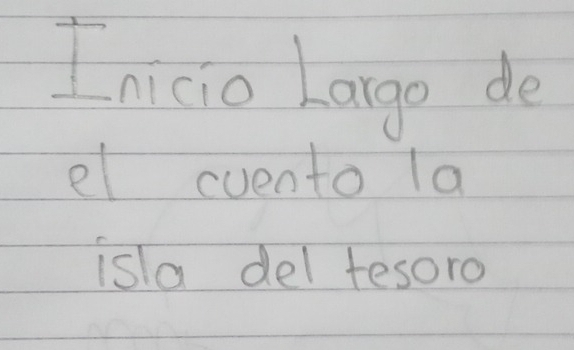 Inicio Largo de
el cuento la
isla del tesoro